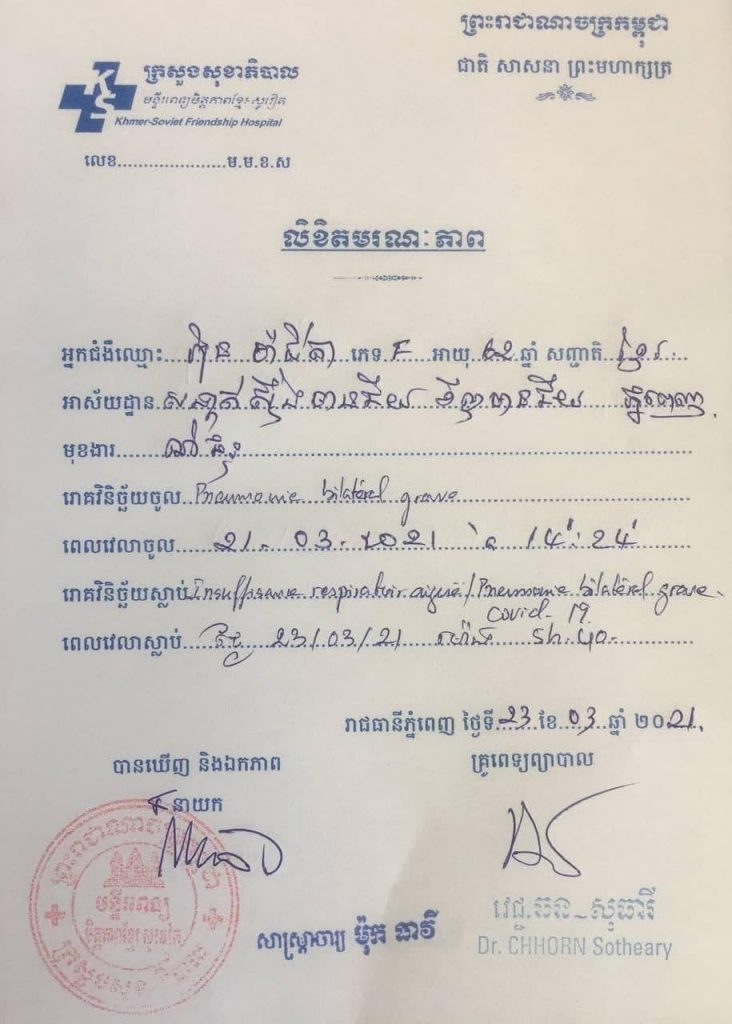 ព្រះរាជាណាចក្រកម្ពុជា
ជាតិ សាសនា ព្រះមហាក្សត្រ
KS
ក្រសួងសុខាភិបាល
មន្ទីរពេទ្យមិត្តភាពខ្មែរ-សូវៀត
Khmer-Soviet Friendship Hospital
លេខ......................ម.ម.ខ.ស
លិខិតមរណៈភាព
អ្នកជំងឺឈ្មោះ ភេទ F អាយុ ឆ្នាំ សញ្ជាតិ ខ្មែរ
អាស័យដ្ឋាន សង្កាត់ស្ទឹងមានជ័យ មានជ័យ ភ្នំពេញ
មុខងារ
រោគវិនិច្ឆ័យចូល Pneumonie bilatéral grave
ពេលវេលាចូល 21-03-2021 à 14:24
រោគវិនិច្ឆ័យស្លាប់ respiratoir aiguë / Pneumonie bilatéral grave
Covid-19
ពេលវេលាស្លាប់ ថ្ងៃ 23/03/21 ម៉ោង 5h.40
រាជធានីភ្នំពេញ ថ្ងៃទី 23 ខែ 03 ឆ្នាំ ២០21
បានឃើញ និងឯកភាព
គ្រូពេទ្យព្យាបាល
នាយក
ព្រះរាជាណាចក្រកម្ពុជា
មន្ទីរពេទ្យ
មិត្តភាពខ្មែរ សូវៀត
ក្រសួងសុខាភិបាល
សាស្ត្រាចារ្យ ម៉ុក ធាវី
វេជ្ជ.ឆន សុធារី
Dr. CHHORN Sotheary